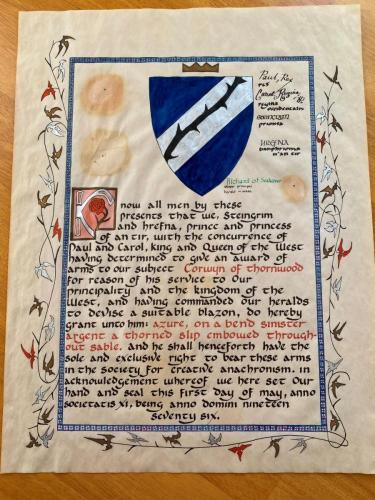 Paul, Rex
Carol, Regina
regina
occidentalis
steingrim
princeps
hrefna
n'an tir
Richard of
now all men by these
presents that we, Steingrim
and hrefna, prince and princess
of an tir, with the concurrence of
Paul and Carol, king and Queen of the West
having determined to give an award of
arms to our subject Corwyn of thornwood
for reason of his service to Our
principality and the kingdom of the
West, and having commanded our heralds
to devise a suitable blazon, do hereby
grant unto him: azure, on a bend sinister
argent a thorned slip embowed through-
out sable. and he shall henceforth have the
sole and exclusive right to bear these arms
in the society for creative anachronism. in
acknowledgement whereof we here set Our
hand and seal this first day of may, anno
societatis xi, being anno domini nineteen
seventy six.